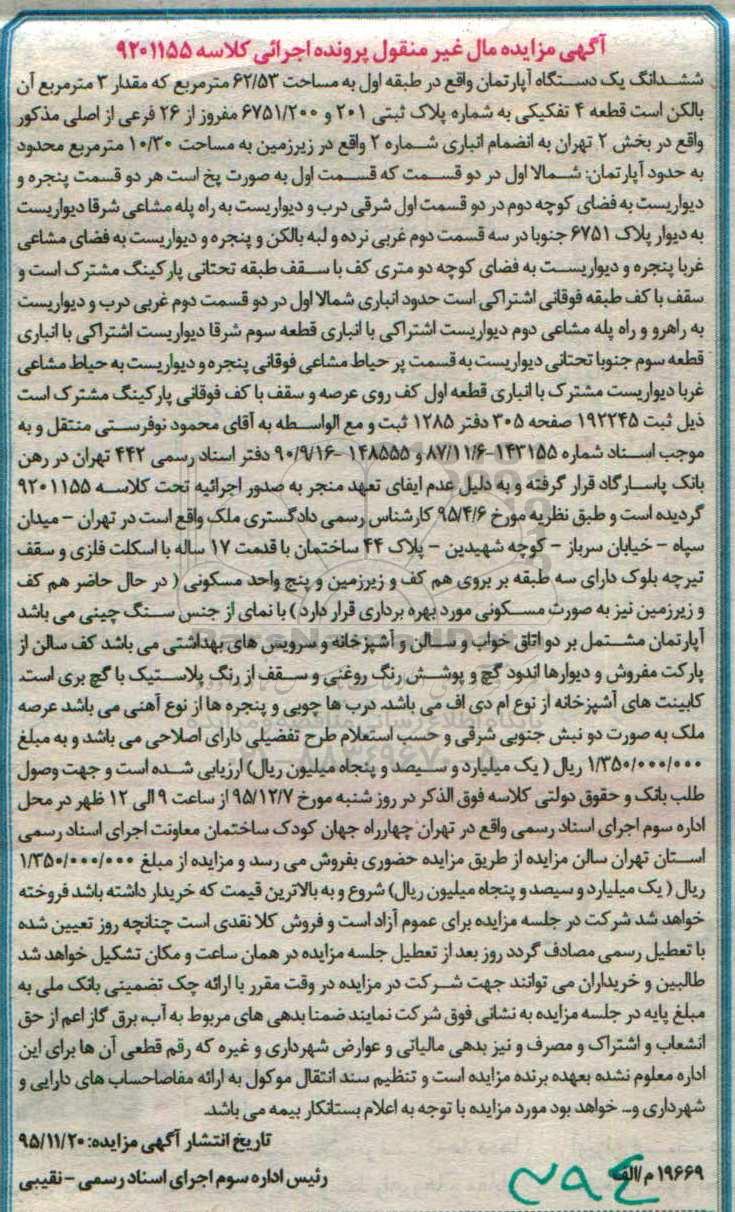 آگهی مزایده مال غیر منقول پرونده اجرائی کلاسه ۹۲۰۱۱۵۵
ششدانگ یک دستگاه آپارتمان واقع در طبقه اول به مساحت ۶۲/۵۳ مترمربع که مقدار ۳ مترمربع آن
بالکن است قطعه ۴ تفکیکی به شماره پلاک ثبتی ۲۰۱ و ۶۷۵۱/۲۰۰ مفروز از ۲۶ فرعی از اصلی مذکور
واقع در بخش ۲ تهران به انضمام انباری شماره ۲ واقع در زیرزمین به مساحت ۱۰/۳۰ مترمربع محدود
به حدود آپارتمان: شمالا اول در دو قسمت که قسمت اول به صورت پخ است هر دو قسمت پنجره و
دیواریست به فضای کوچه دوم در دو قسمت اول شرقی درب و دیواریست به راه پله مشاعی شرقا دیواریست
به دیوار پلاک ۶۷۵۱ جنوبا در سه قسمت دوم غربی نرده و لبه بالکن و پنجره و دیواریست به فضای مشاعی
غربا پنجره و دیواریست به فضای کوچه دو متری کف با سقف طبقه تحتانی پارکینگ مشترک است و
سقف با کف طبقه فوقانی اشتراکی است حدود انباری شمالا اول در دو قسمت دوم غربی درب و دیواریست
به راهرو و راه پله مشاعی دوم دیواریست اشتراکی با انباری قطعه سوم شرقا دیواریست اشتراکی با انباری
قطعه سوم جنوبا تحتانی دیواریست به قسمت پر حیاط مشاعی فوقانی پنجره و دیواریست به حیاط مشاعی
غربا دیواریست مشترک با انباری قطعه اول کف روی عرصه و سقف با کف فوقانی پارکینگ مشترک است
ذیل ثبت ۱۹۲۲۴۵ صفحه ۳۰۵ دفتر ۱۲۸۵ ثبت و مع الواسطه به آقای محمود نوفرستی منتقل و به
موجب اسناد شماره ۱۴۳۱۵۵-۸۷/۱۱/۶ و ۱۴۸۵۵۵-۹۰/۹/۱۶ دفتر اسناد رسمی ۴۴۲ تهران در رهن
بانک پاسارگاد قرار گرفته و به دلیل عدم ایفای تعهد منجر به صدور اجرائیه تحت کلاسه ۹۲۰۱۱۵۵
گردیده است و طبق نظریه مورخ ۹۵/۴/۶ کارشناس رسمی دادگستری ملک واقع است در تهران - میدان
سپاه - خیابان سرباز - کوچه شهیدین - پلاک ۴۴ ساختمان با قدمت ۱۷ ساله با اسکلت فلزی و سقف
تیرچه بلوک دارای سه طبقه بر بروی هم کف و زیرزمین و پنج واحد مسکونی ( در حال حاضر هم کف
و زیرزمین نیز به صورت مسکونی مورد بهره برداری قرار دارد ) با نمای از جنس سنگ چینی می باشد
آپارتمان مشتمل بر دو اتاق خواب و سالن و آشپزخانه و سرویس های بهداشتی می باشد کف سالن از
پارکت مفروش و دیوارها اندود گچ و پوشش رنگ روغنی و سقف از رنگ پلاستیک با گچ بری است.
کابینت های آشپزخانه از نوع ام دی اف می باشد. درب ها چوبی و پنجره ها از نوع آهنی می باشد عرصه
ملک به صورت دو نبش جنوبی شرقی و حسب استعلام طرح تفضیلی دارای اصلاحی می باشد و به مبلغ
۱/۳۵۰/۰۰۰/۰۰۰ ریال ( یک میلیارد و سیصد و پنجاه میلیون ریال) ارزیابی شده است و جهت وصول
طلب بانک و حقوق دولتی کلاسه فوق الذکر در روز شنبه مورخ ۹۵/۱۲/۷ از ساعت ۹ الی ۱۲ ظهر در محل
اداره سوم اجرای اسناد رسمی واقع در تهران چهارراه جهان کودک ساختمان معاونت اجرای اسناد رسمی
استان تهران سالن مزایده از طریق مزایده حضوری بفروش می رسد و مزایده از مبلغ ۱/۳۵۰/۰۰۰/۰۰۰
ریال ( یک میلیارد و سیصد و پنجاه میلیون ریال) شروع و به بالاترین قیمت که خریدار داشته باشد فروخته
خواهد شد شرکت در جلسه مزایده برای عموم آزاد است و فروش کلا نقدی است چنانچه روز تعیین شده
با تعطیل رسمی مصادف گردد روز بعد از تعطیل جلسه مزایده در همان ساعت و مکان تشکیل خواهد شد
طالبین و خریداران می توانند جهت شرکت در مزایده در وقت مقرر با ارائه چک تضمینی بانک ملی به
مبلغ پایه در جلسه مزایده به نشانی فوق شرکت نمایند ضمنا بدهی های مربوط به آب، برق گاز اعم از حق
انشعاب و اشتراک و مصرف و نیز بدهی مالیاتی و عوارض شهرداری و غیره که رقم قطعی آن ها برای این
اداره معلوم نشده بعهده برنده مزایده است و تنظیم سند انتقال موکول به ارائه مفاصاحساب های دارایی و
شهرداری و... خواهد بود مورد مزایده با توجه به اعلام بستانکار بیمه می باشد.
تاریخ انتشار آگهی مزایده: ۹۵/۱۱/۲۰
۱۹۶۶۹ م/الف
رئیس اداره سوم اجرای اسناد رسمی - نقیبی